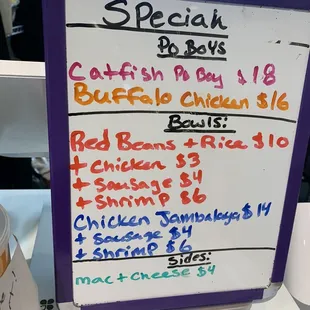 Special
Po Boys
Catfish Po Boy $18
Buffalo Chicken $16
Bowls:
Red Beans + Rice $10
+ Chicken $3
+ Sausage $4
+ Shrimp $6
Chicken Jambalaya $14
+ Sausage $4
+ Shrimp $6
Sides:
mac + Cheese $4